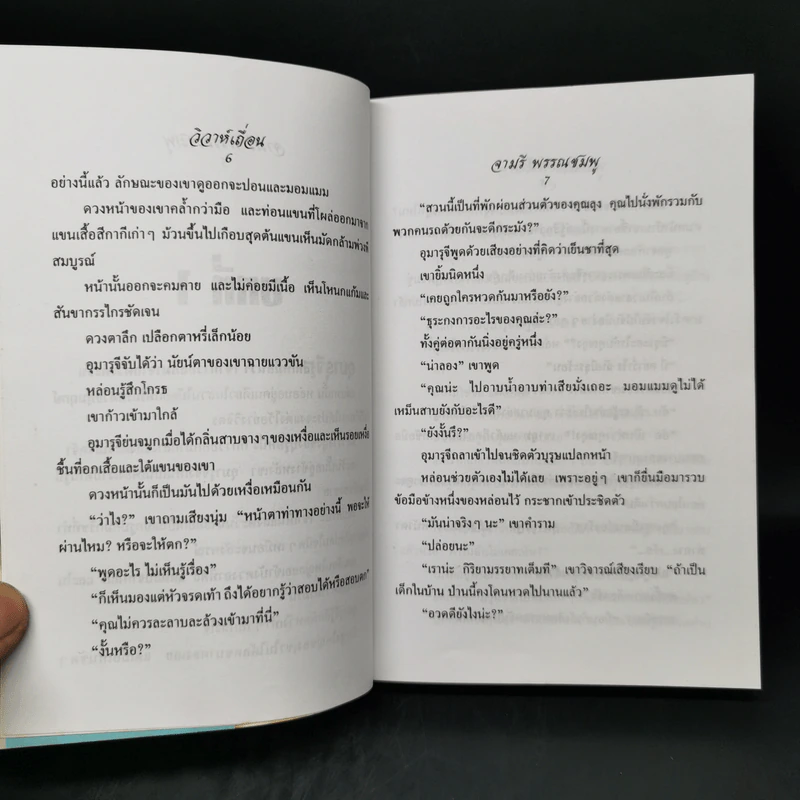 วิวาห์เถื่อน
6
อย่างนี้แล้ว ลักษณะของเขาดูออกจะปอนและมอมแมม
ดวงหน้าของเขาคล้ำกว่ามือ และท่อนแขนที่โผล่ออกมาจาก
แขนเสื้อสีกากีเก่าๆ ม้วนขึ้นไปเกือบสุดต้นแขนเห็นมัดกล้ามพ่วงพี
สมบูรณ์
หน้านั้นออกจะคมคาย และไม่ค่อยมีเนื้อ เห็นโหนกแก้มและ
สันขากรรไกรชัดเจน
ดวงตาลึก เปลือกตาหรี่เล็กน้อย
อุมารุจีจับได้ว่า นัยน์ตาของเขาฉายแววขัน
หล่อนรู้สึกโกรธ
เขาก้าวเข้ามาใกล้
อุมารุจีย่นจมูกเมื่อได้กลิ่นสาบจางๆของเหงื่อและเห็นรอยเหงื่อ
ชื้นที่อกเสื้อและใต้แขนของเขา
ดวงหน้านั้นก็เป็นมันไปด้วยเหงื่อเหมือนกัน
“ว่าไง?” เขาถามเสียงนุ่ม “หน้าตาท่าทางอย่างนี้ พอจะให้
ผ่านไหม? หรือจะให้ตก?”
“พูดอะไร ไม่เห็นรู้เรื่อง”
“ก็เห็นมองแต่หัวจรดเท้า ถึงได้อยากรู้ว่าสอบได้หรือสอบตก”
“คุณไม่ควรละลาบละล้วงเข้ามาที่นี่”
“งั้นหรือ?”
จามรี พรรณชมพู
7
“สวนนี้เป็นที่พักผ่อนส่วนตัวของคุณลุง คุณไปนั่งพักรวมกับ
พวกคนรถด้วยกันจะดีกระมัง?”
อุมารุจีพูดด้วยเสียงอย่างที่คิดว่าเย็นชาที่สุด
เขายิ้มนิดหนึ่ง
“เคยถูกใครหวดก้นมาหรือยัง?”
“ธุระกงการอะไรของคุณล่ะ?”
ทั้งคู่ต่อตากันนิ่งอยู่ครู่หนึ่ง
“น่าลอง” เขาพูด
“คุณน่ะ ไปอาบน้ำอาบท่าเสียมั่งเถอะ มอมแมมดูไม่ได้
เหม็นสาบยังกับอะไรดี”
“ยังงั้นรึ?”
อุมารุจีถลาเข้าไปจนชิดตัวบุรุษแปลกหน้า
หล่อนช่วยตัวเองไม่ได้เลย เพราะอยู่ๆ เขาก็ยื่นมือมารวบ
ข้อมือข้างหนึ่งของหล่อนไว้ กระชากเข้าประชิดตัว
“มันน่าจริงๆ นะ” เขาคำราม
“ปล่อยนะ”
“เราน่ะ กิริยามรรยาทเต็มที” เขาวิจารณ์เสียงเรียบ “ถ้าเป็น
เด็กในบ้าน ป่านนี้คงโดนหวดไปนานแล้ว”
“อวดดียังไงน่ะ?”